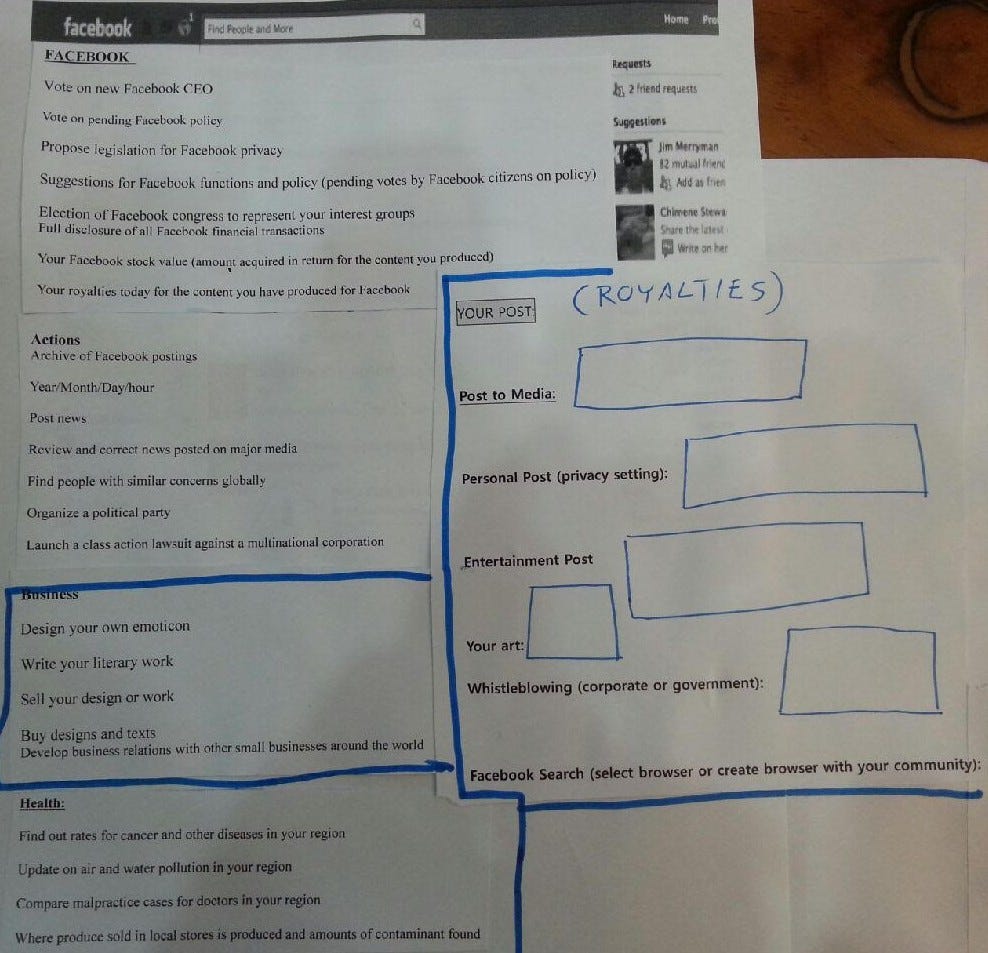 facebook
1
Find People and More
Home
FACEBOOK
Vote on new Facebook CEO
Vote on pending Facebook policy
Propose legislation for Facebook privacy
Suggestions for Facebook functions and policy (pending votes by Facebook citizens on policy)
Election of Facebook congress to represent your interest groups
Full disclosure of all Facebook financial transactions
Your Facebook stock value (amount acquired in return for the content you produced)
Your royalties today for the content you have produced for Facebook
Requests
2 friend requests
Suggestions
Jim Merryman
82 mutual
Add as
Chimene
Share the latest
Write on her
Actions
Archive of Facebook postings
Year/Month/Day/hour
Post news
Review and correct news posted on major media
Find people with similar concerns globally
Organize a political party
Launch a class action lawsuit against a multinational corporation
Business
Design your own emoticon
Write your literary work
Sell your design or work
Buy designs and texts
Develop business relations with other small businesses around the world
Health:
Find out rates for cancer and other diseases in your region
Update on air and water pollution in your region
Compare malpractice cases for doctors in your region
Where produce sold in local stores is produced and amounts of contaminant found
(ROYALTIES)
YOUR POST:
Post to Media:
Personal Post (privacy setting):
Entertainment Post
Your art:
Whistleblowing (corporate or government):
Facebook Search (select browser or create browser with your community):